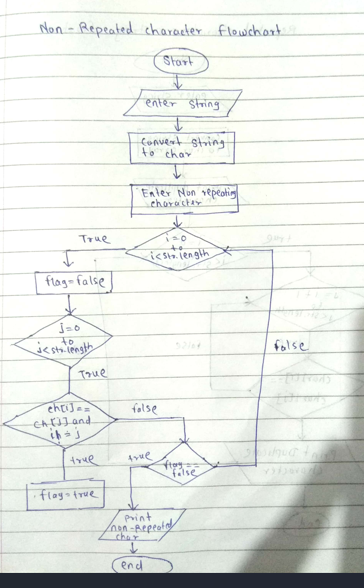 Non-Repeated character Flowchart
Start
enter String
Convert String
to char
Enter Non repeating
character
True
i=0
to
i<str.length
flag=false
j=0
to
j<str.length
false
True
ch[i]==
ch[j] and
i!=j
false
true
true
flag==
false
flag=true
print
non-Repeated
char
end